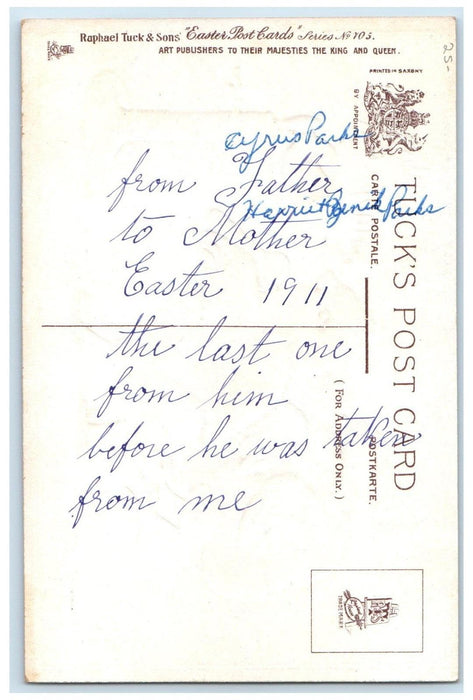 Raphael Tuck & Sons' "Easter Post Cards" Series No 705.
ART PUBLISHERS TO THEIR MAJESTIES THE KING AND QUEEN.
25-
PRINTED IN SAXONY
BY APPOINTMENT
TUCK'S POST CARD
CARTE POSTALE.
POSTKARTE.
(FOR ADDRESS ONLY.)
Cyrus Parks
from Father
Harriet Parks
to Mother
Easter 1911
the last one
from him
before he was taken
from me
TRADE MARK